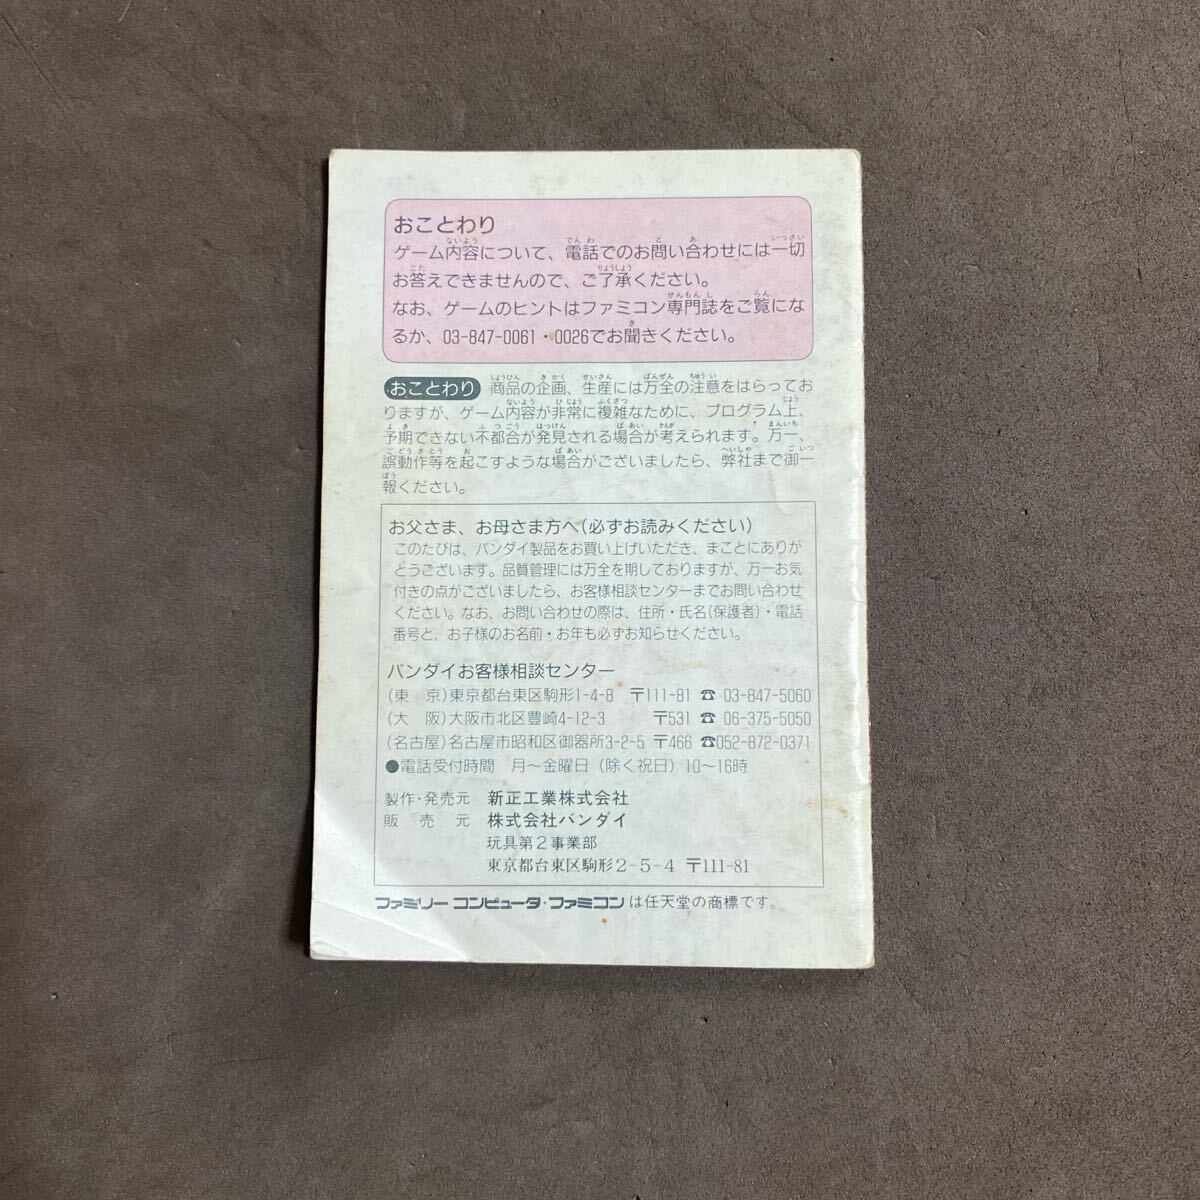 おことわり
ゲーム内容について、電話でのお問い合わせには一切
お答えできませんので、ご了承ください。
なお、ゲームのヒントはファミコン専門誌をご覧にな
るか、03-847-0061・0026でお聞きください。
おことわり 商品の企画、生産には万全の注意をはらってお
りますが、ゲーム内容が非常に複雑なために、プログラム上、
予期できない不都合が発見される場合が考えられます。万一、
誤動作等を起こすような場合がございましたら、弊社まで御一
報ください。
お父さま、お母さま方へ(必ずお読みください)
このたびは、バンダイ製品をお買い上げいただき、まことにありが
とうございます。品質管理には万全を期しておりますが、万一お気
付きの点がございましたら、お客様相談センターまでお問い合わせ
ください。なお、お問い合わせの際は、住所・氏名(保護者)・電話
番号と、お子様のお名前・お年も必ずお知らせください。
バンダイお客様相談センター
(東 京)東京都台東区駒形1-4-8 〒111-81 ☎ 03-847-5060
(大 阪)大阪市北区豊崎4-12-3 〒531 ☎ 06-375-5050
(名古屋)名古屋市昭和区御器所3-2-5 〒466 ☎052-872-0371
●電話受付時間 月〜金曜日(除く祝日)10〜16時
製作・発売元 新正工業株式会社
販売元 株式会社バンダイ
玩具第2事業部
東京都台東区駒形2-5-4 〒111-81
ファミリーコンピュータ・ファミコンは任天堂の商標です。